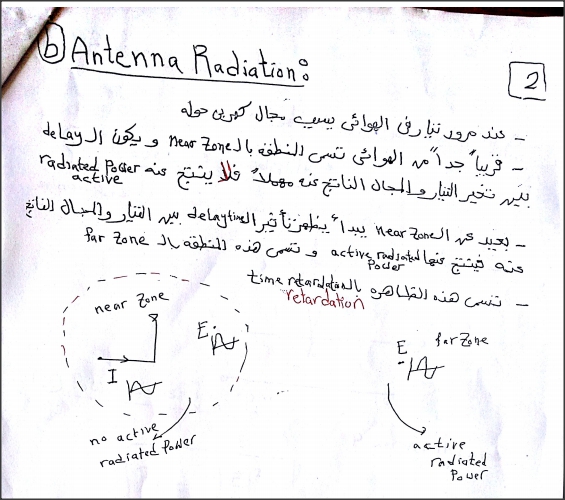 b) Antenna Radiation:
2
- عند مرور تيار فى الهوائى يسبب مجال كهربى حوله
- قريباً جداً من الهوائى تسمى المنطقه بالـ near Zone ويكون الـ delay
بين تغير التيار والمجال الناتج عنه مهملاً فلا ينتج عنه radiated Power
active
- بعيد عن الـ near Zone يبدأ يظهر تأثير الـ delay time بين التيار والمجال الناتج
عنه فينتج عنها active radiated وتسمى هذه المنطقه بالـ far Zone
Power
- تسمى هذه الظاهره بالـ time retardation
retardation
near Zone
E
I
no active
radiated Power
far Zone
E
active
radiated
Power